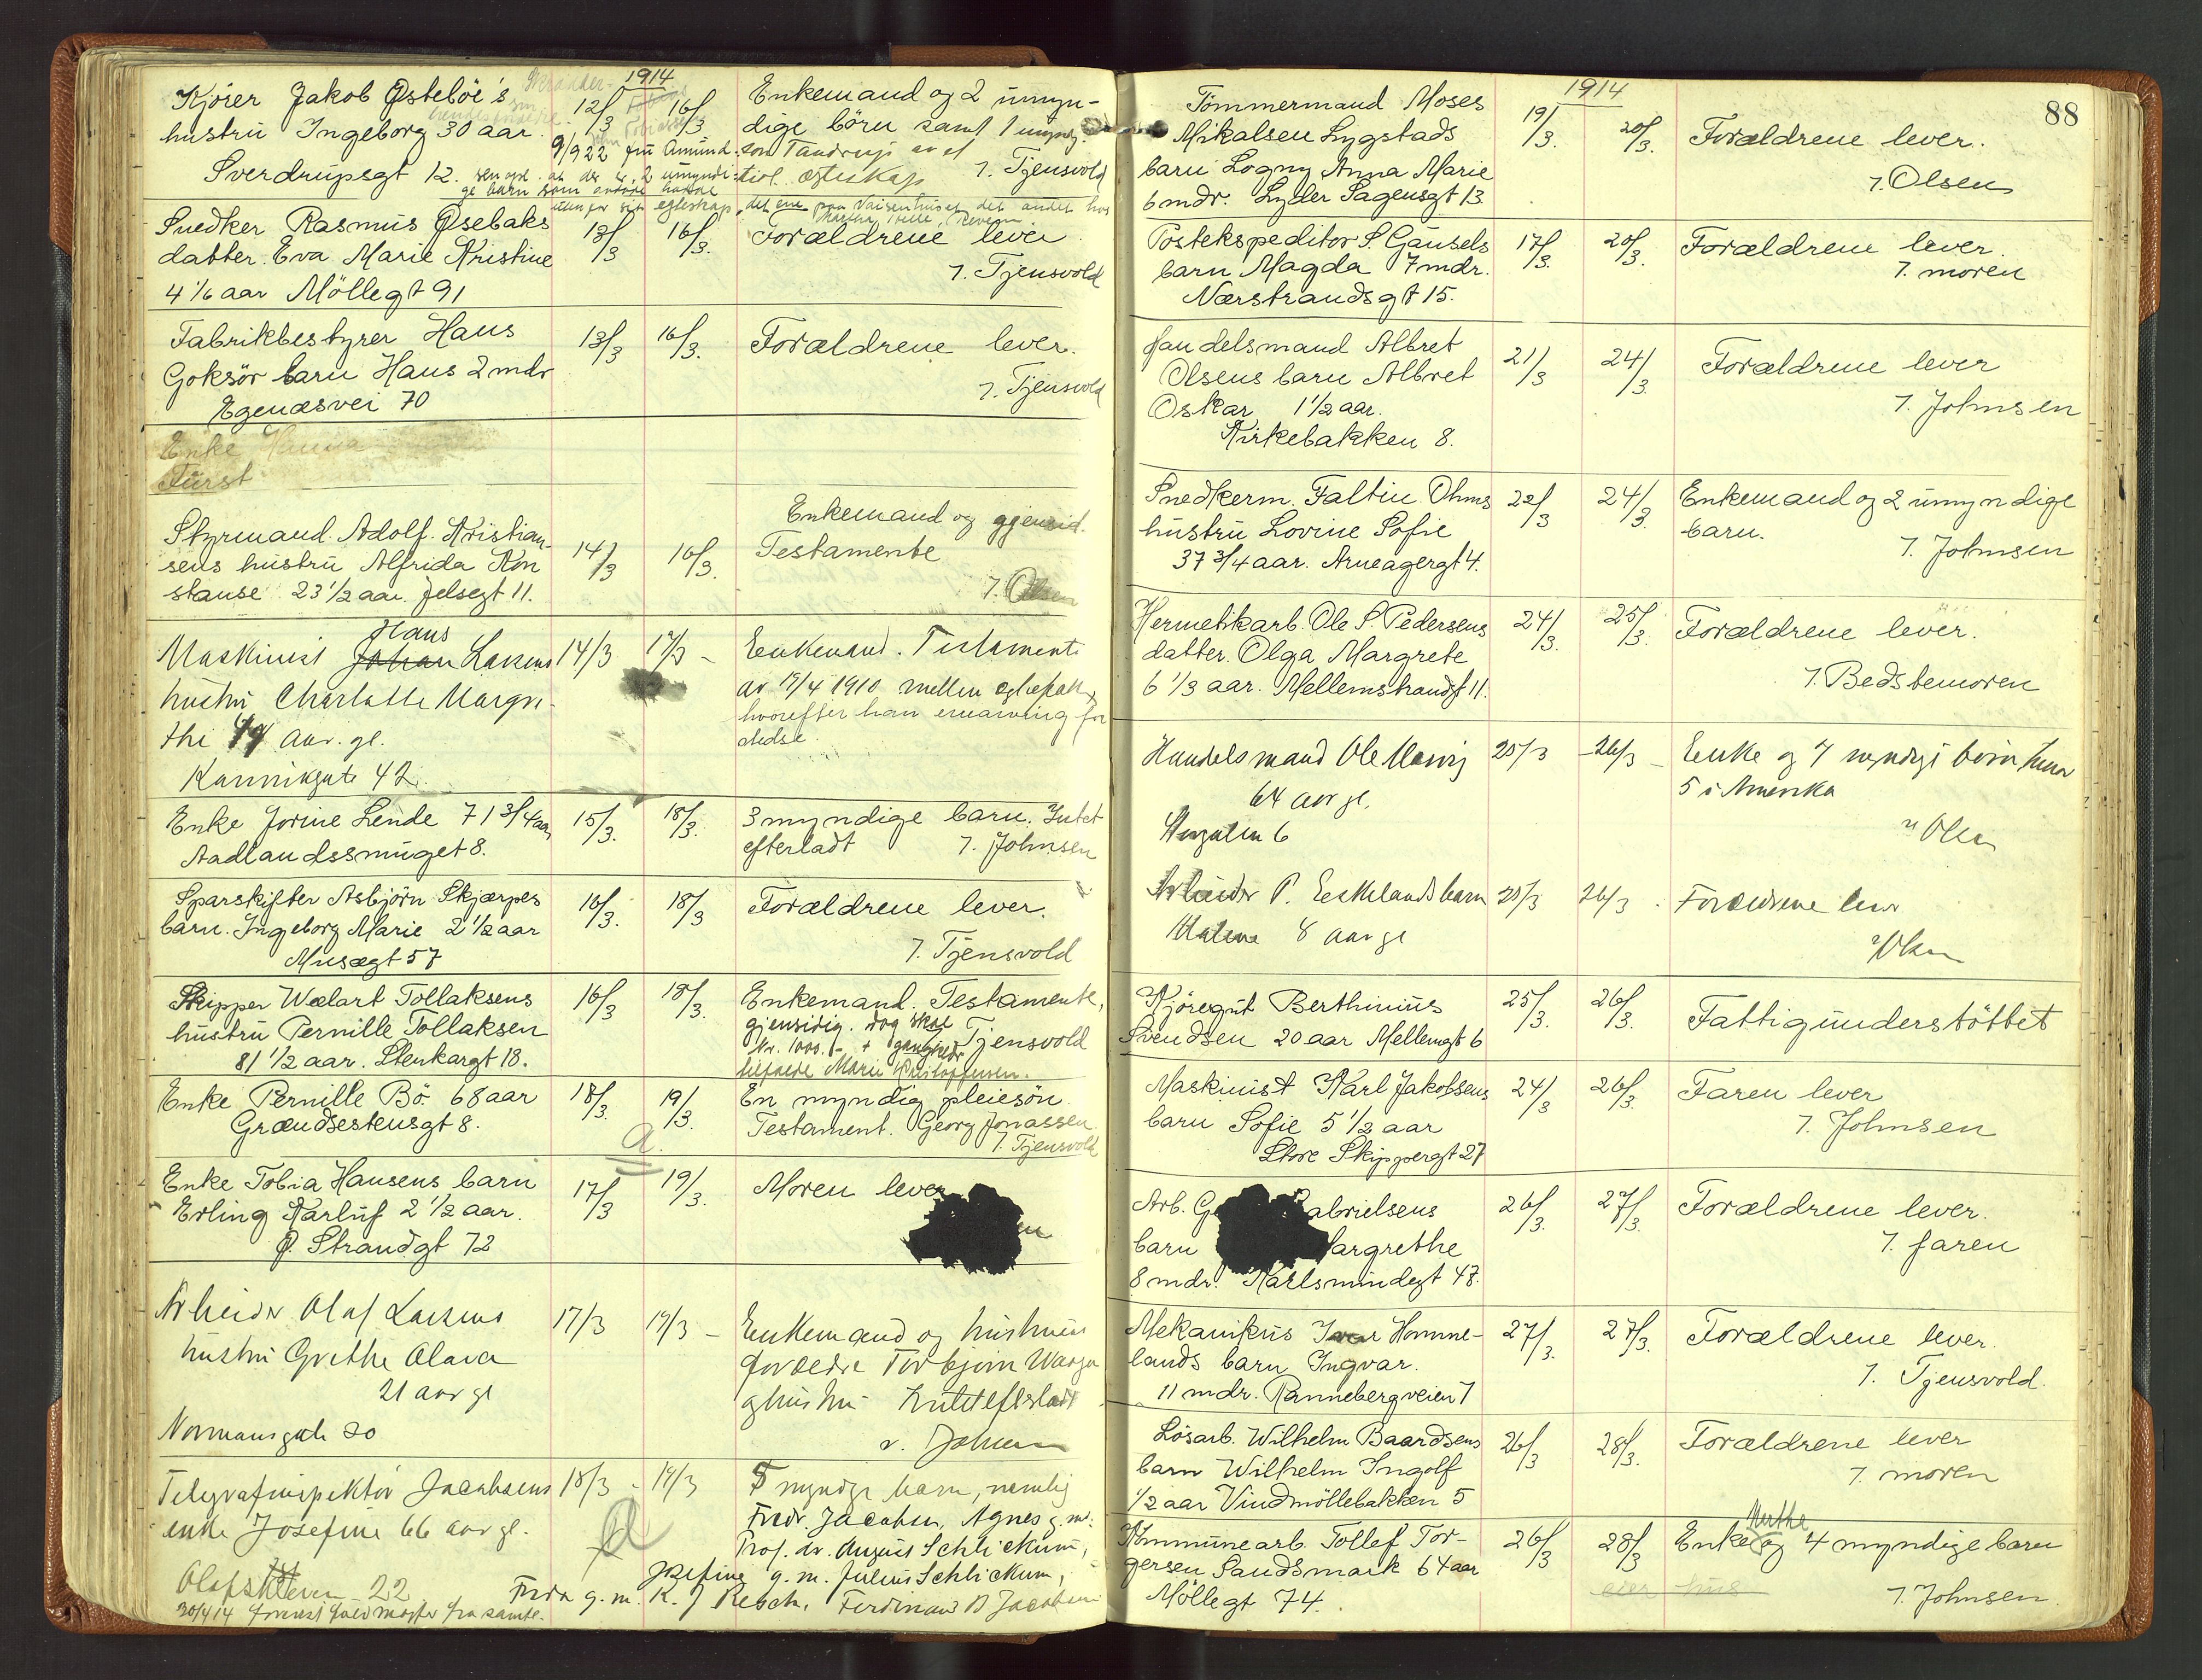 1914
Kjörer Jakob Østeböe's
hustru Ingeborg 30 aar.
Sverdrupsgt 12.
12/3 16/3
Enkemand og 2 umyn-
dige börn samt 1 myndig.
9/9 22 fru Amund-
7. Tjensvold
Snedker Rasmus Øsebaks
datter. Eva Marie Kristine
4 1/6 aar Möllegt 91
13/3 16/3.
Forældrene lever
7. Tjensvold
Fabrikbestyrer Hans
Goksör barn Hans 2 mdr
Egenæsvei 70
13/3 16/3.
Forældrene lever.
7. Tjensvold
Enke
Fürst
Styrmand Adolf Kristian-
sens hustru Alfrida Kon
stanse 23 1/2 aar. Jelsegt 11.
14/3 16/3.
Enkemand og gjensid.
Testamente
7. Olsen
Maskinist Johan Hans Larsens
hustru Charlotte Margre-
the aar. gl.
Kannikgate 42.
14/3 17/3 -
Enkemand. Testamente
av 19/4 1910 mellem egtefolk,
hvorefter han enearving for
Enke Jorine Lende 71 3/4 aar
Aadlandssmuget 8.
15/3. 18/3.
3 myndige barn. Intet
efterladt 7. Johnsen
Sparskifter Asbjörn Skjærpes
barn. Ingeborg Marie 2 1/2 aar
Musægt 57
16/3. 18/3
Forældrene lever.
7. Tjensvold
Skipper Wælart Tollaksens
hustru Pernille Tollaksen
81 1/2 aar. Stenkargt 18.
16/3 18/3.
Enkemand. Testamente,
gjensidig. dog skal
Kr. 1000.- + gangklær Tjensvold
tilfalde Marie Kristoffersen.
Enke Pernille Bö. 68 aar
Grændsestensgt 8.
18/3. 19/3.
En myndig pleiesön.
Testament. Georg Jonassen.
7. Tjensvold
a.
Enke Tobia Hansens barn
Erling Karluf 2 1/2 aar.
Ø. Strandgt 72
17/3 19/3.
Moren lever
Arbeider Olaf Larsens
hustru Grethe Olava
21 aar gl
Normansgate 20
17/3 19/3 -
Enkemand og hustruens
forældre Torbjörn
Intet efterladt
v. Johnsen
Telegrafinspektör Jacobsens
enke Josefine 66 aar gl.
22
18/3 - 19/3
a
5 myndige barn, nemlig
Fredr. Jacobsen, Agnes g. m.
Prof. dr. August Schlickum,
Josefine g. m. Julius Schlickum,
Frida g. m. K. J. Resch, Ferdinand B Jacobsen
88
1914
Tömmermand Moses
Mikalsen Lygstads
barn Logny Anna Marie
6 mdr. Lyder Sagensgt 13.
19/3. 20/3.
Forældrene lever.
7. Olsen
Postekspeditör S. Gausels
barn Magda 7 mdr.
Nærstrandsgt 15.
17/3. 20/3.
Forældrene lever.
7. moren
Handelsmand Albret
Olsens barn Albret
Oskar 1 1/2 aar.
Kirkebakken 8.
21/3 24/3.
Forældrene lever
7. Johnsen
Snedkerm. Faltin Ohms
hustru Lovine Sofie
37 3/4 aar. Arneagergt 4.
22/3 24/3.
Enkemand og 2 umyndige
barn.
7. Johnsen
Hermetikarb. Ole S. Pedersens
datter. Olga Margrete
6 1/3 aar. Mellemstrandgt 11.
24/3. 25/3.
Forældrene lever.
7. Bedstemoren
Handelsmand Ole
64 aar gl.
25/3 - 26/3 -
Enke og 7 myndige börn hvorav
5 i Amerika
v Olsen
Arbeider P. Eeskelands barn
Malene 8 aar gl
25/3 26/3 -
Forældrene lever
v Olsen
Kjöregut Berthinius
Svendsen 20 aar Mellemgt 6
25/3. 26/3.
Fattigunderstöttet
Maskinist Karl Jakobsens
barn Sofie 5 1/2 aar
Store Skippergt 27
24/3 26/3.
Faren lever
7. Johnsen
Arb. G abrielsens
barn argrethe
8 mdr. Karlsmindegt 48.
26/3. 27/3.
Forældrene lever.
7. faren
Mekanikus Ivar Homme-
lands barn Ingvar.
11 mdr. Rannebergveien 7
27/3. 27/3.
Forældrene lever.
7. Tjensvold.
Lösarb. Wilhelm Baardsens
barn Wilhelm Ingolf
1/2 aar Vindmöllebakken 5
26/3 28/3.
Forældrene lever
7. moren
Kommunearb. Tollef Tor-
gersen Sandsmark 64 aar
Möllegt 74.
26/3 28/3.
Enke Marthe og 4 myndige barn
eier hus
7. Johnsen.